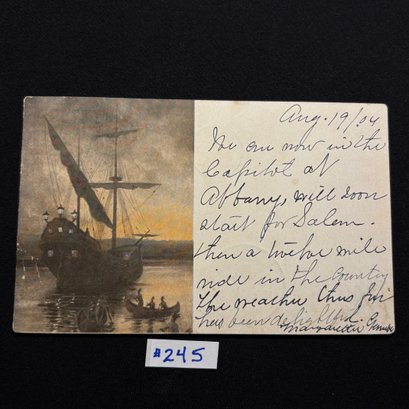 Aug. 19/04
We are now in the
Capitol at
Albany, will soon
start for Salem.
then a twelve mile
ride in the Country
The weather thus far
has been delightful.
Margaretta
#245